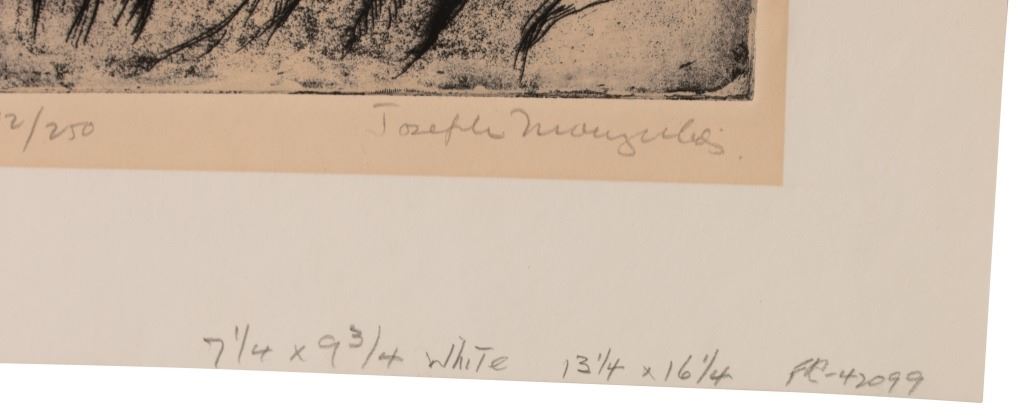 2/250 Joseph Margulies
7 1/4 x 9 3/4 White 13 1/4 x 16 1/4 -42099